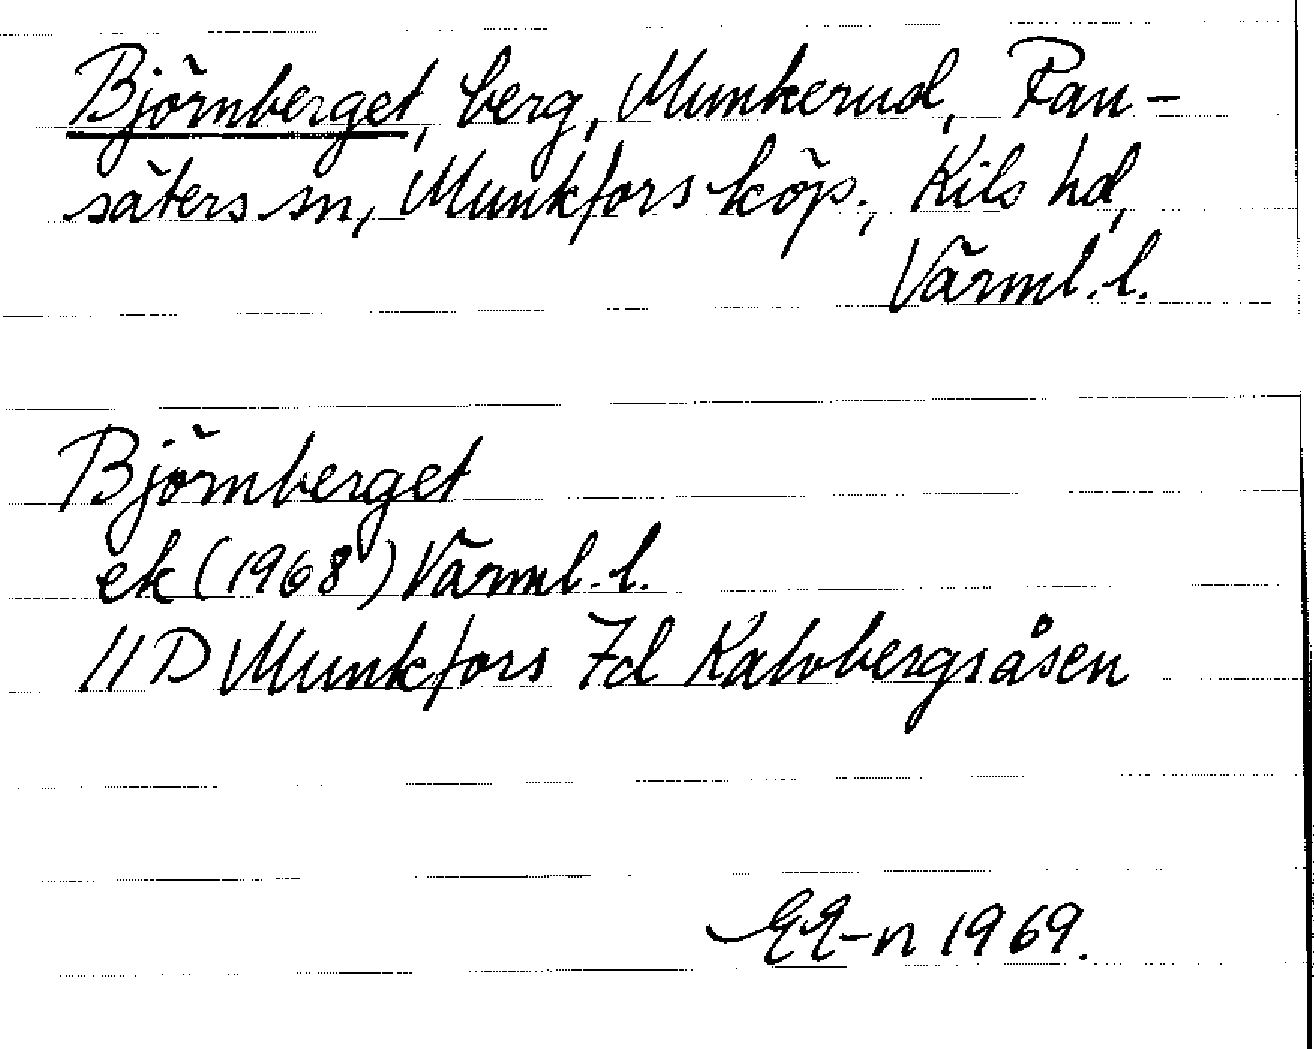 Björnberget, berg, Munkerud, Ran-
säters sn, Munkfors köp., Kils hd,
Värml. l.
Björnberget
ek (1968) Värml. l.
11D Munkfors 7d Kalvbergsåsen
EE-n 1969.